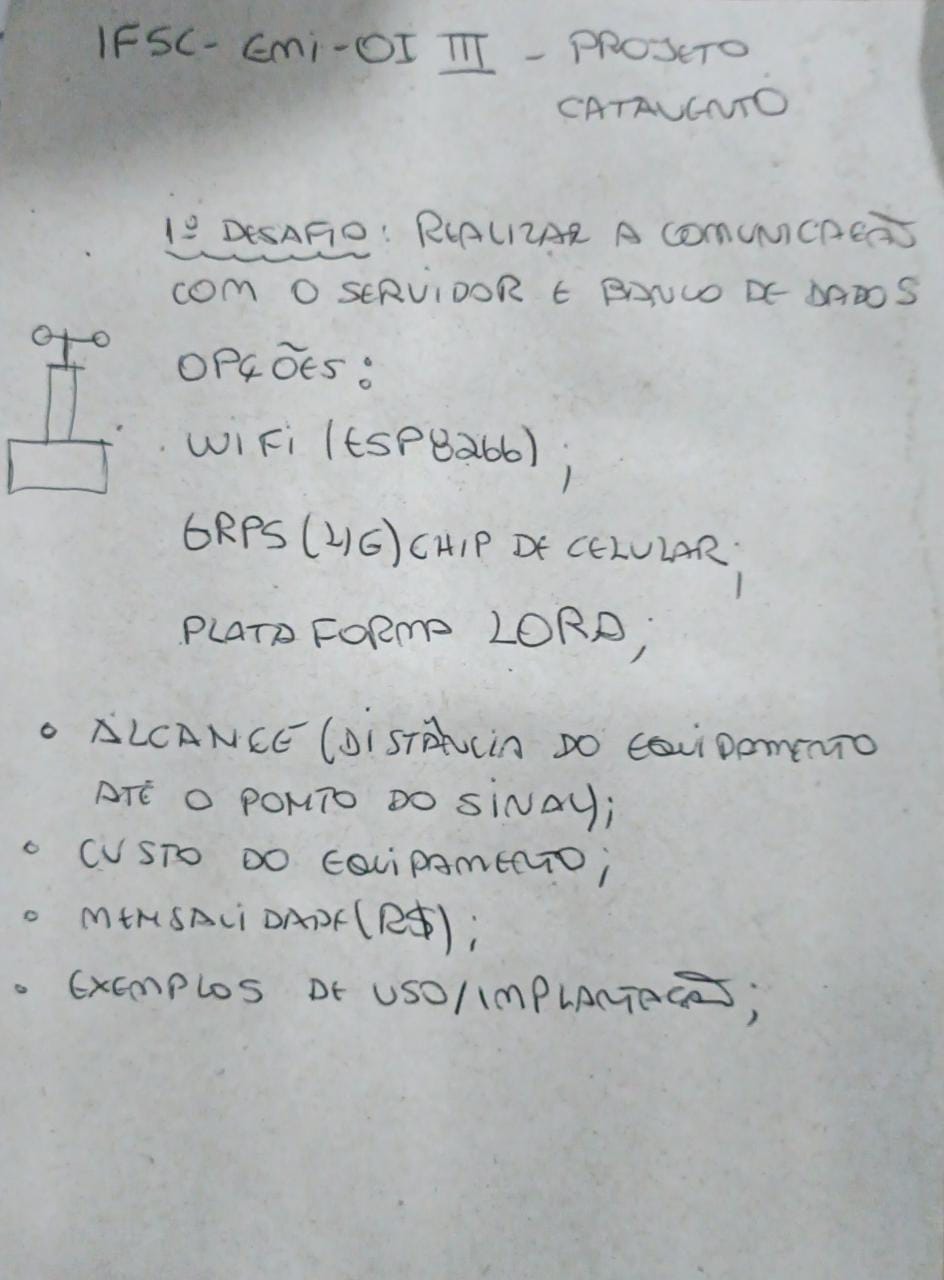 IFSC- EMi-OI III - PROJETO
CATAVENTO
1º DESAFIO: REALIZAR A COMUNICAÇÃO
COM O SERVIDOR E BANCO DE DADOS
OPÇÕES:
WiFi (ESP8266);
GRPS (4G) CHIP DE CELULAR;
PLATAFORMA LORA;
• ALCANCE (DISTÂNCIA DO EQUIPAMENTO
ATÉ O PONTO DO SINAL);
• CUSTO DO EQUIPAMENTO;
• MENSALIDADE (R$);
• EXEMPLOS DE USO/IMPLANTAÇÃO;